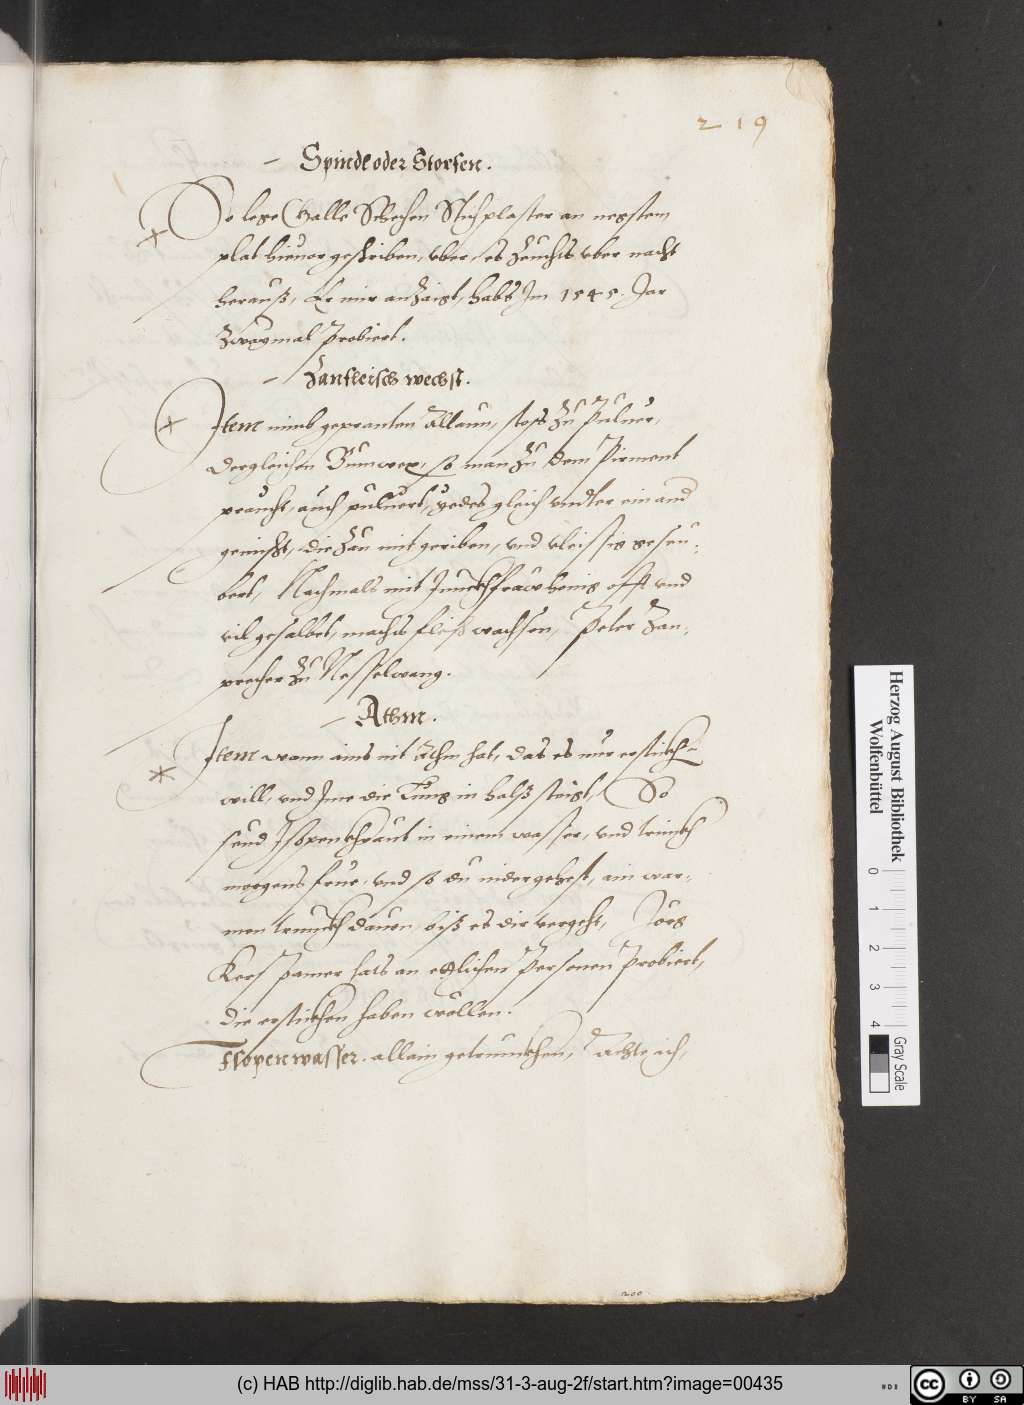 219
Spindl oder Storsen.
So lege Galle Stichplaster an negstem
plat hieuor geschriben, vber, es zeuchts vber nacht
herauß, Er mir anzaigt, habs Im 1545. Jar
zwaymal Probiert.
Zanfleisch wechst.
Item nimb geprantten Allaun, stoß zu Puluer,
dergleichen so man zu dem Pirment
praucht, auch puluert, yedes gleich vndter ein and
gemischt, die Zän mit geriben, vnd vleissig geseu-
bert, Nachmals mit Junckhfraw honig offt vnd
vil gesalbet, machts fleisch wachsen, Peter Zan-
precher zu Nesselwang.
Athm.
Item wann ains nit Athm hat, das es nur erstickhn
will, vnd Ime die Lung in halß steigt, So
seud Isopenkhraut in einem wasser, vnd trinckh
morgens frue, vnd so du nidergehest, ain war-
men trunckh dauon, biß es dir vergeht, Jörg
hats an etzlichen Personen Probiert,
die erstickhen haben wöllen.
Isopenwasser. allain getrunckhen, Acht ich,
200
Herzog August Bibliothek
Wolfenbüttel
0 1 2 3 4
Gray Scale
(c) HAB http://diglib.hab.de/mss/31-3-aug-2f/start.htm?image=00435
cc BY SA